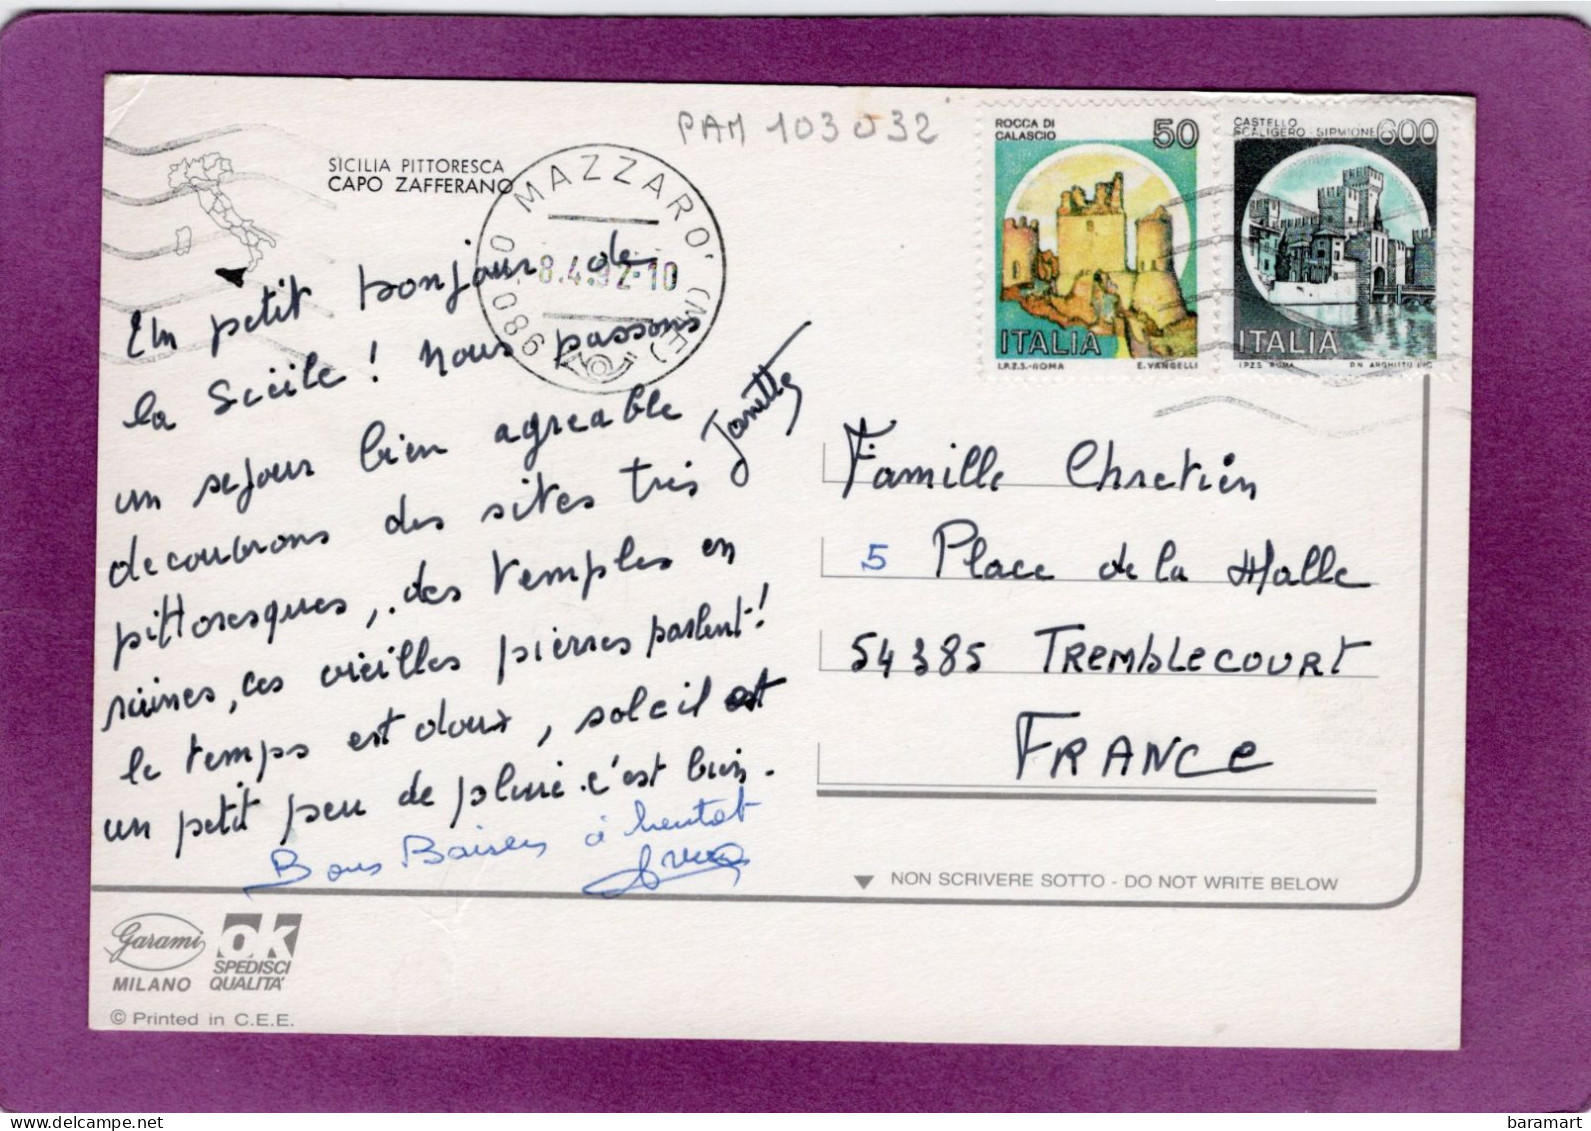 PAM 103032
SICILIA PITTORESCA
CAPO ZAFFERANO
98030 MAZZARO' (ME)
8.4.92-10
ROCCA DI
CALASCIO
50
ITALIA
I.P.Z.S.-ROMA E. VANGELLI
CASTELLO
SCALIGERO - SIRMIONE
600
ITALIA
I.P.Z.S. ROMA
Un petit bonjour de
la Sciile ! Nous passons
un sejour bien agreable
decouvrons des sites très
pittoresques, des temples en
ruines, ces vieilles pierres parlent!
le temps est doux, soleil et
un petit peu de pluie. c'est bien.
Janette
Bons Baisers à bientot
Famille Chretien
5 Place de la Halle
54385 TREMBLECOURT
FRANCE
NON SCRIVERE SOTTO - DO NOT WRITE BELOW
Garami
MILANO
OK
SPEDISCI
QUALITA'
© Printed in C.E.E.
baramart